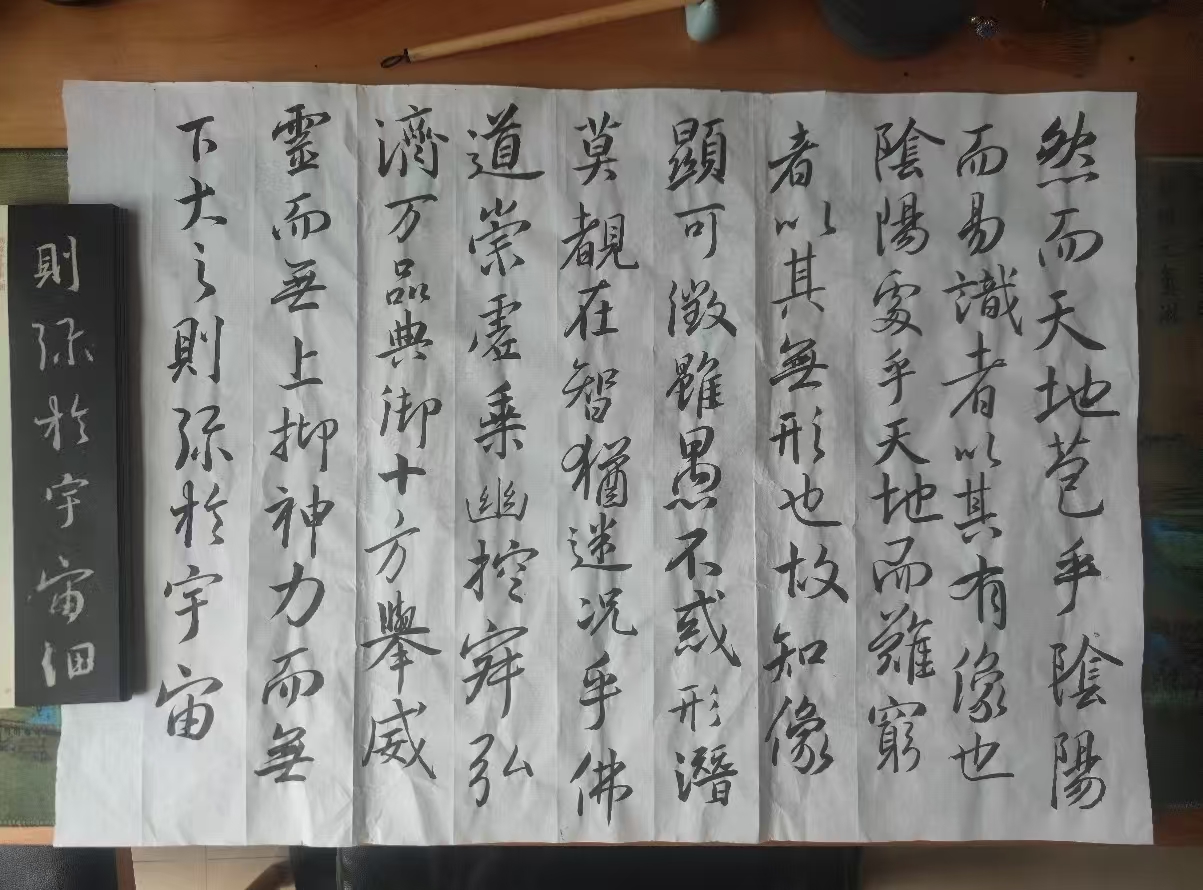 然而天地苞乎陰陽
而易識者以其有像也
陰陽處乎天地而難窮
者以其無形也故知像
顯可徵雖愚不惑形潛
莫覩在智猶迷况乎佛
道崇虛乗幽控寂弘
濟万品典御十方舉威
靈而無上抑神力而無
下大之則弥於宇宙
則弥於宇宙細